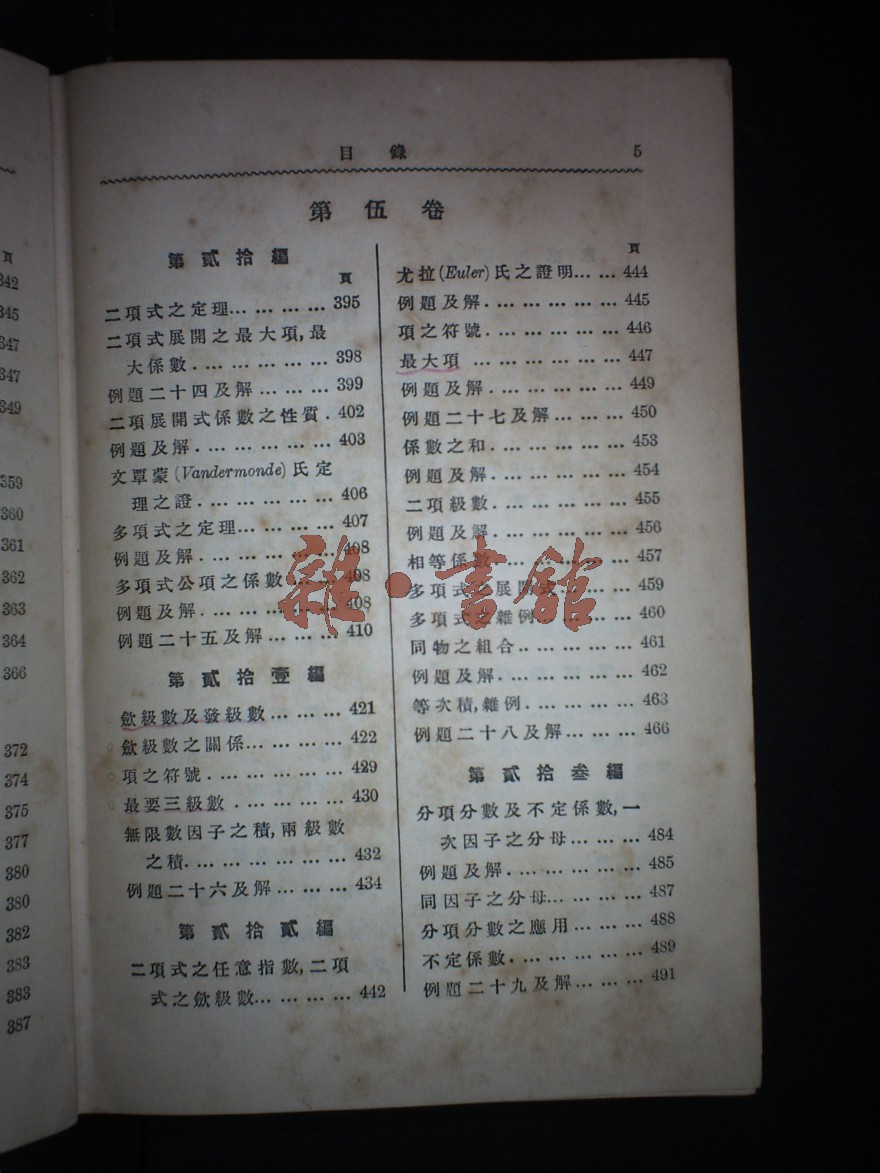 目錄 5
第伍卷
第貳拾編
頁
二項式之定理… … … … 395
二項式展開之最大項,最
大係數. … … … … … 398
例題二十四及解. … … … 399
二項展開式係數之性質. 402
例題及解. … … … … … 403
文覃蒙(Vandermonde)氏定
理之證. … … … … … 406
多項式之定理… … … … 407
例題及解. … … … … … 408
多項式公項之係數 … … 408
例題及解. … … … … … 408
例題二十五及解… … … 410
第貳拾壹編
斂級數及發級數… … … 421
斂級數之關係… … … … 422
項之符號. … … … … … 429
最要三級數. … … … … 430
無限數因子之積,兩級數
之積. … … … … … … 432
例題二十六及解… … … 434
第貳拾貳編
二項式之任意指數,二項
式之斂級數… … … … 442
頁
尤拉(Euler)氏之證明… … 444
例題及解. … … … … … 445
項之符號. … … … … … 446
最大項 … … … … … … 447
例題及解. … … … … … 449
例題二十七及解… … … 450
係數之和. … … … … … 453
例題及解. … … … … … 454
二項級數. … … … … … 455
例題及解. … … … … … 456
相等係數. … … … … … 457
多項式之展開式… … … 459
多項式之雜例… … … … 460
同物之組合. … … … … 461
例題及解. … … … … … 462
等次積,雜例. … … … … 463
例題二十八及解… … … 466
第貳拾叁編
分項分數及不定係數,一
次因子之分母… … … 484
例題及解. … … … … … 485
同因子之分母… … … … 487
分項分數之應用… … … 488
不定係數. … … … … … 489
例題二十九及解… … … 491
頁
342
345
347
347
349
359
360
361
362
363
364
366
372
374
375
377
380
380
382
383
383
387
雜·書館